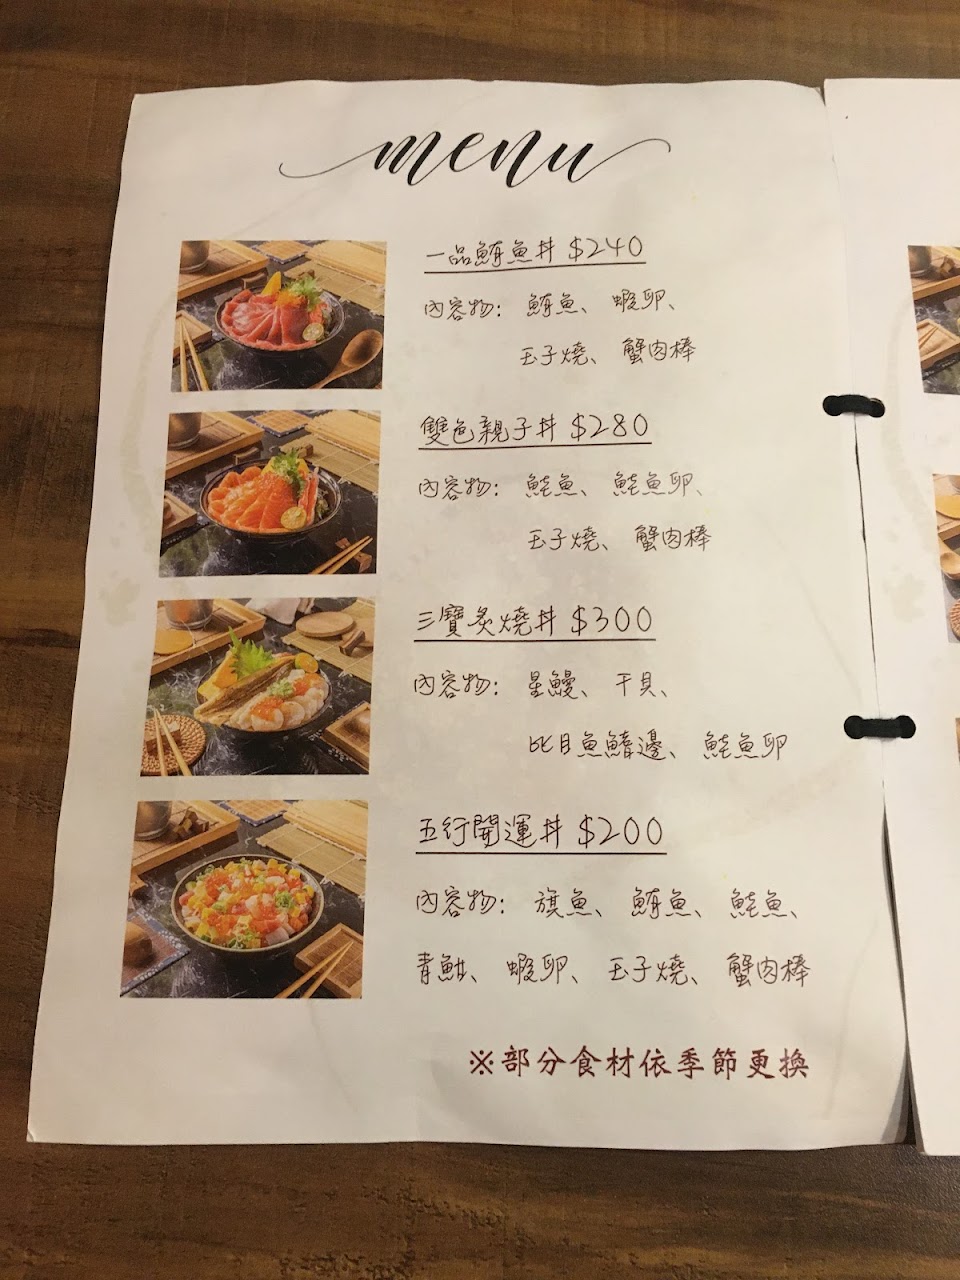 menu
一品鮪魚丼 $240
內容物: 鮪魚、 蝦卵、
玉子燒、 蟹肉棒
雙色親子丼 $280
內容物: 鮭魚、 鮭魚卵、
玉子燒、 蟹肉棒
三寶炙燒丼 $300
內容物: 星鰻、 干貝、
比目魚鰭邊、 鮭魚卵
五行開運丼 $200
內容物: 旗魚、 鮪魚、 鮭魚、
青魽、 蝦卵、 玉子燒、 蟹肉棒
※部分食材依季節更換